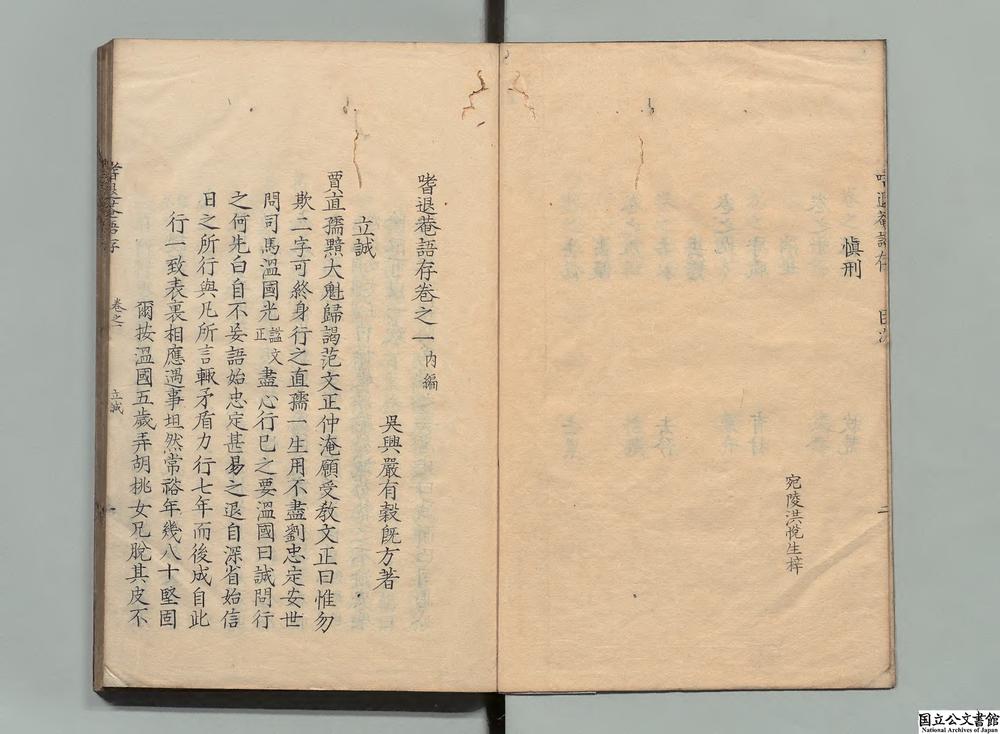 慎刑
宛陵洪悅生梓
嗜退菴語存 目次 二
嗜退菴語存卷之一 內編
吳興嚴有穀旣方著
立誠
賈直孺黯大魁歸謁范文正仲淹願受敎文正曰惟勿
欺二字可終身行之直孺一生用不盡劉忠定安世
問司馬溫國光 諡文正 盡心行已之要溫國曰誠問行
之何先曰自不妄語始忠定甚易之退自深省始信
日之所行與凡所言輒矛盾力行七年而後成自此
行一致表裏相應遇事坦然常裕年幾八十堅固
爾按溫國五歲弄胡桃女兄脫其皮不
嗜退菴語存 卷之一 立誠 一
国立公文書館
National Archives of Japan